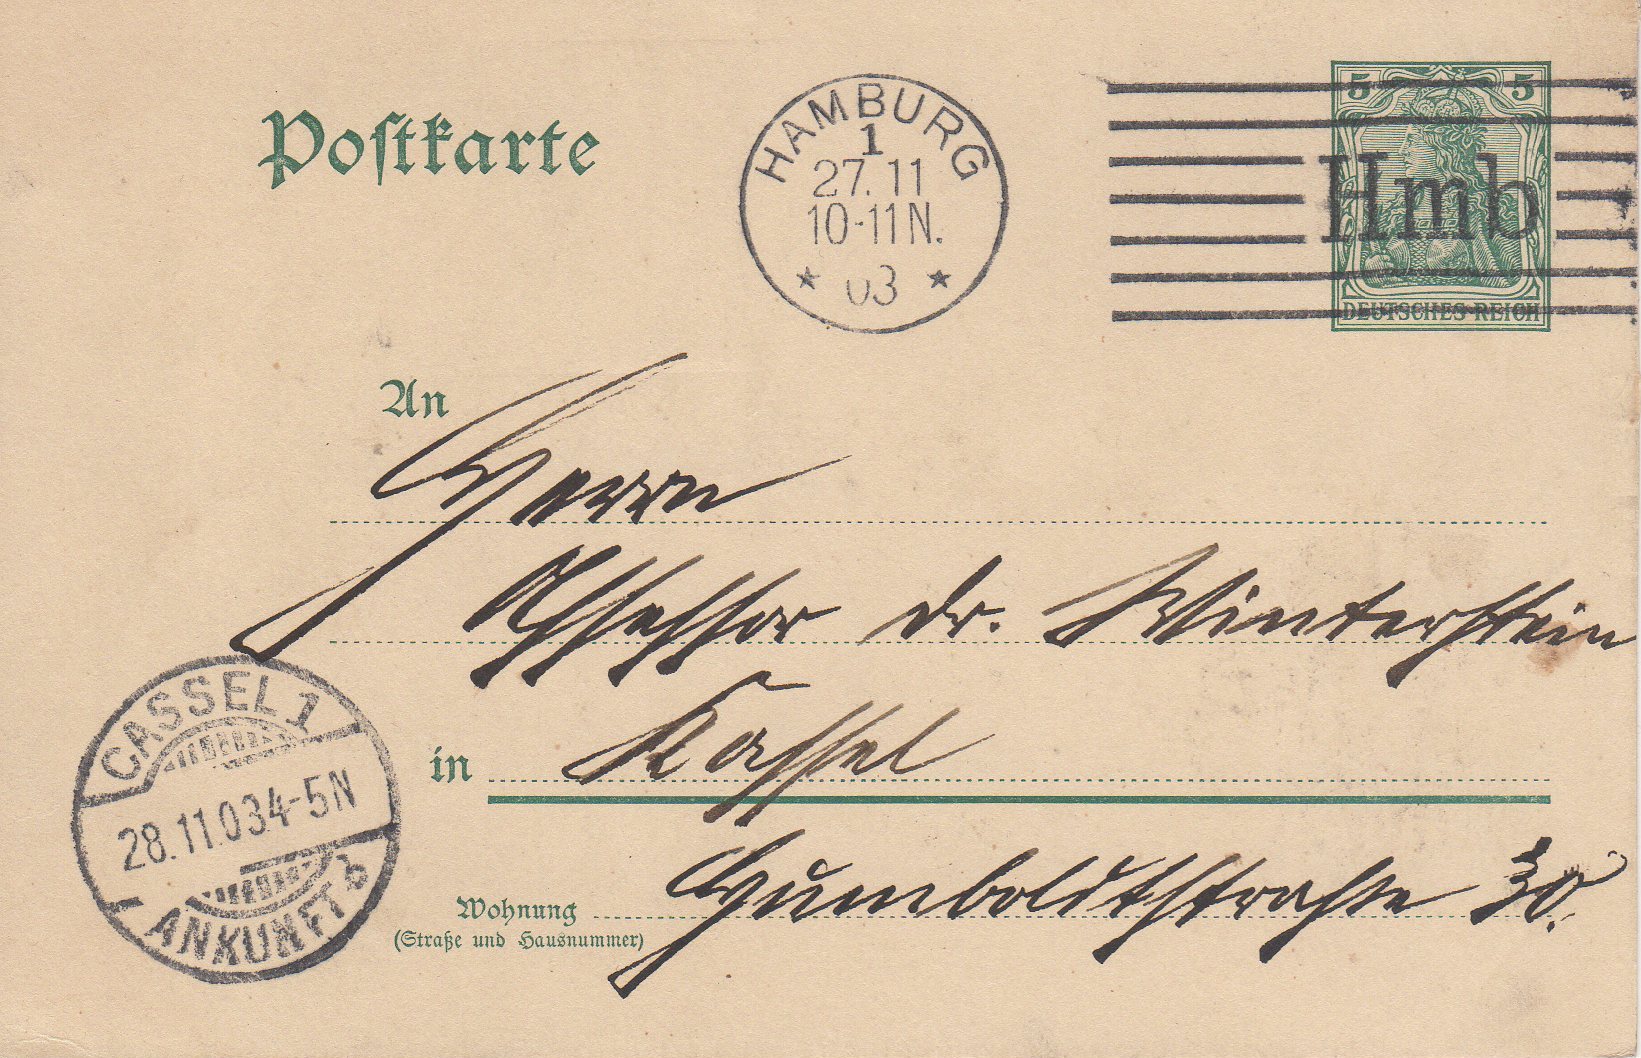 Postkarte
HAMBURG
1
27.11
10-11 N.
* 03 *
5 5
Hmb
DEUTSCHES REICH
An
Herrn
Assessor Dr. Winterstein
in Kassel
CASSEL 1
28.11.03 4-5N
ANKUNFT b
Humboldtstrasse 30.
Wohnung
(Straße und Hausnummer)